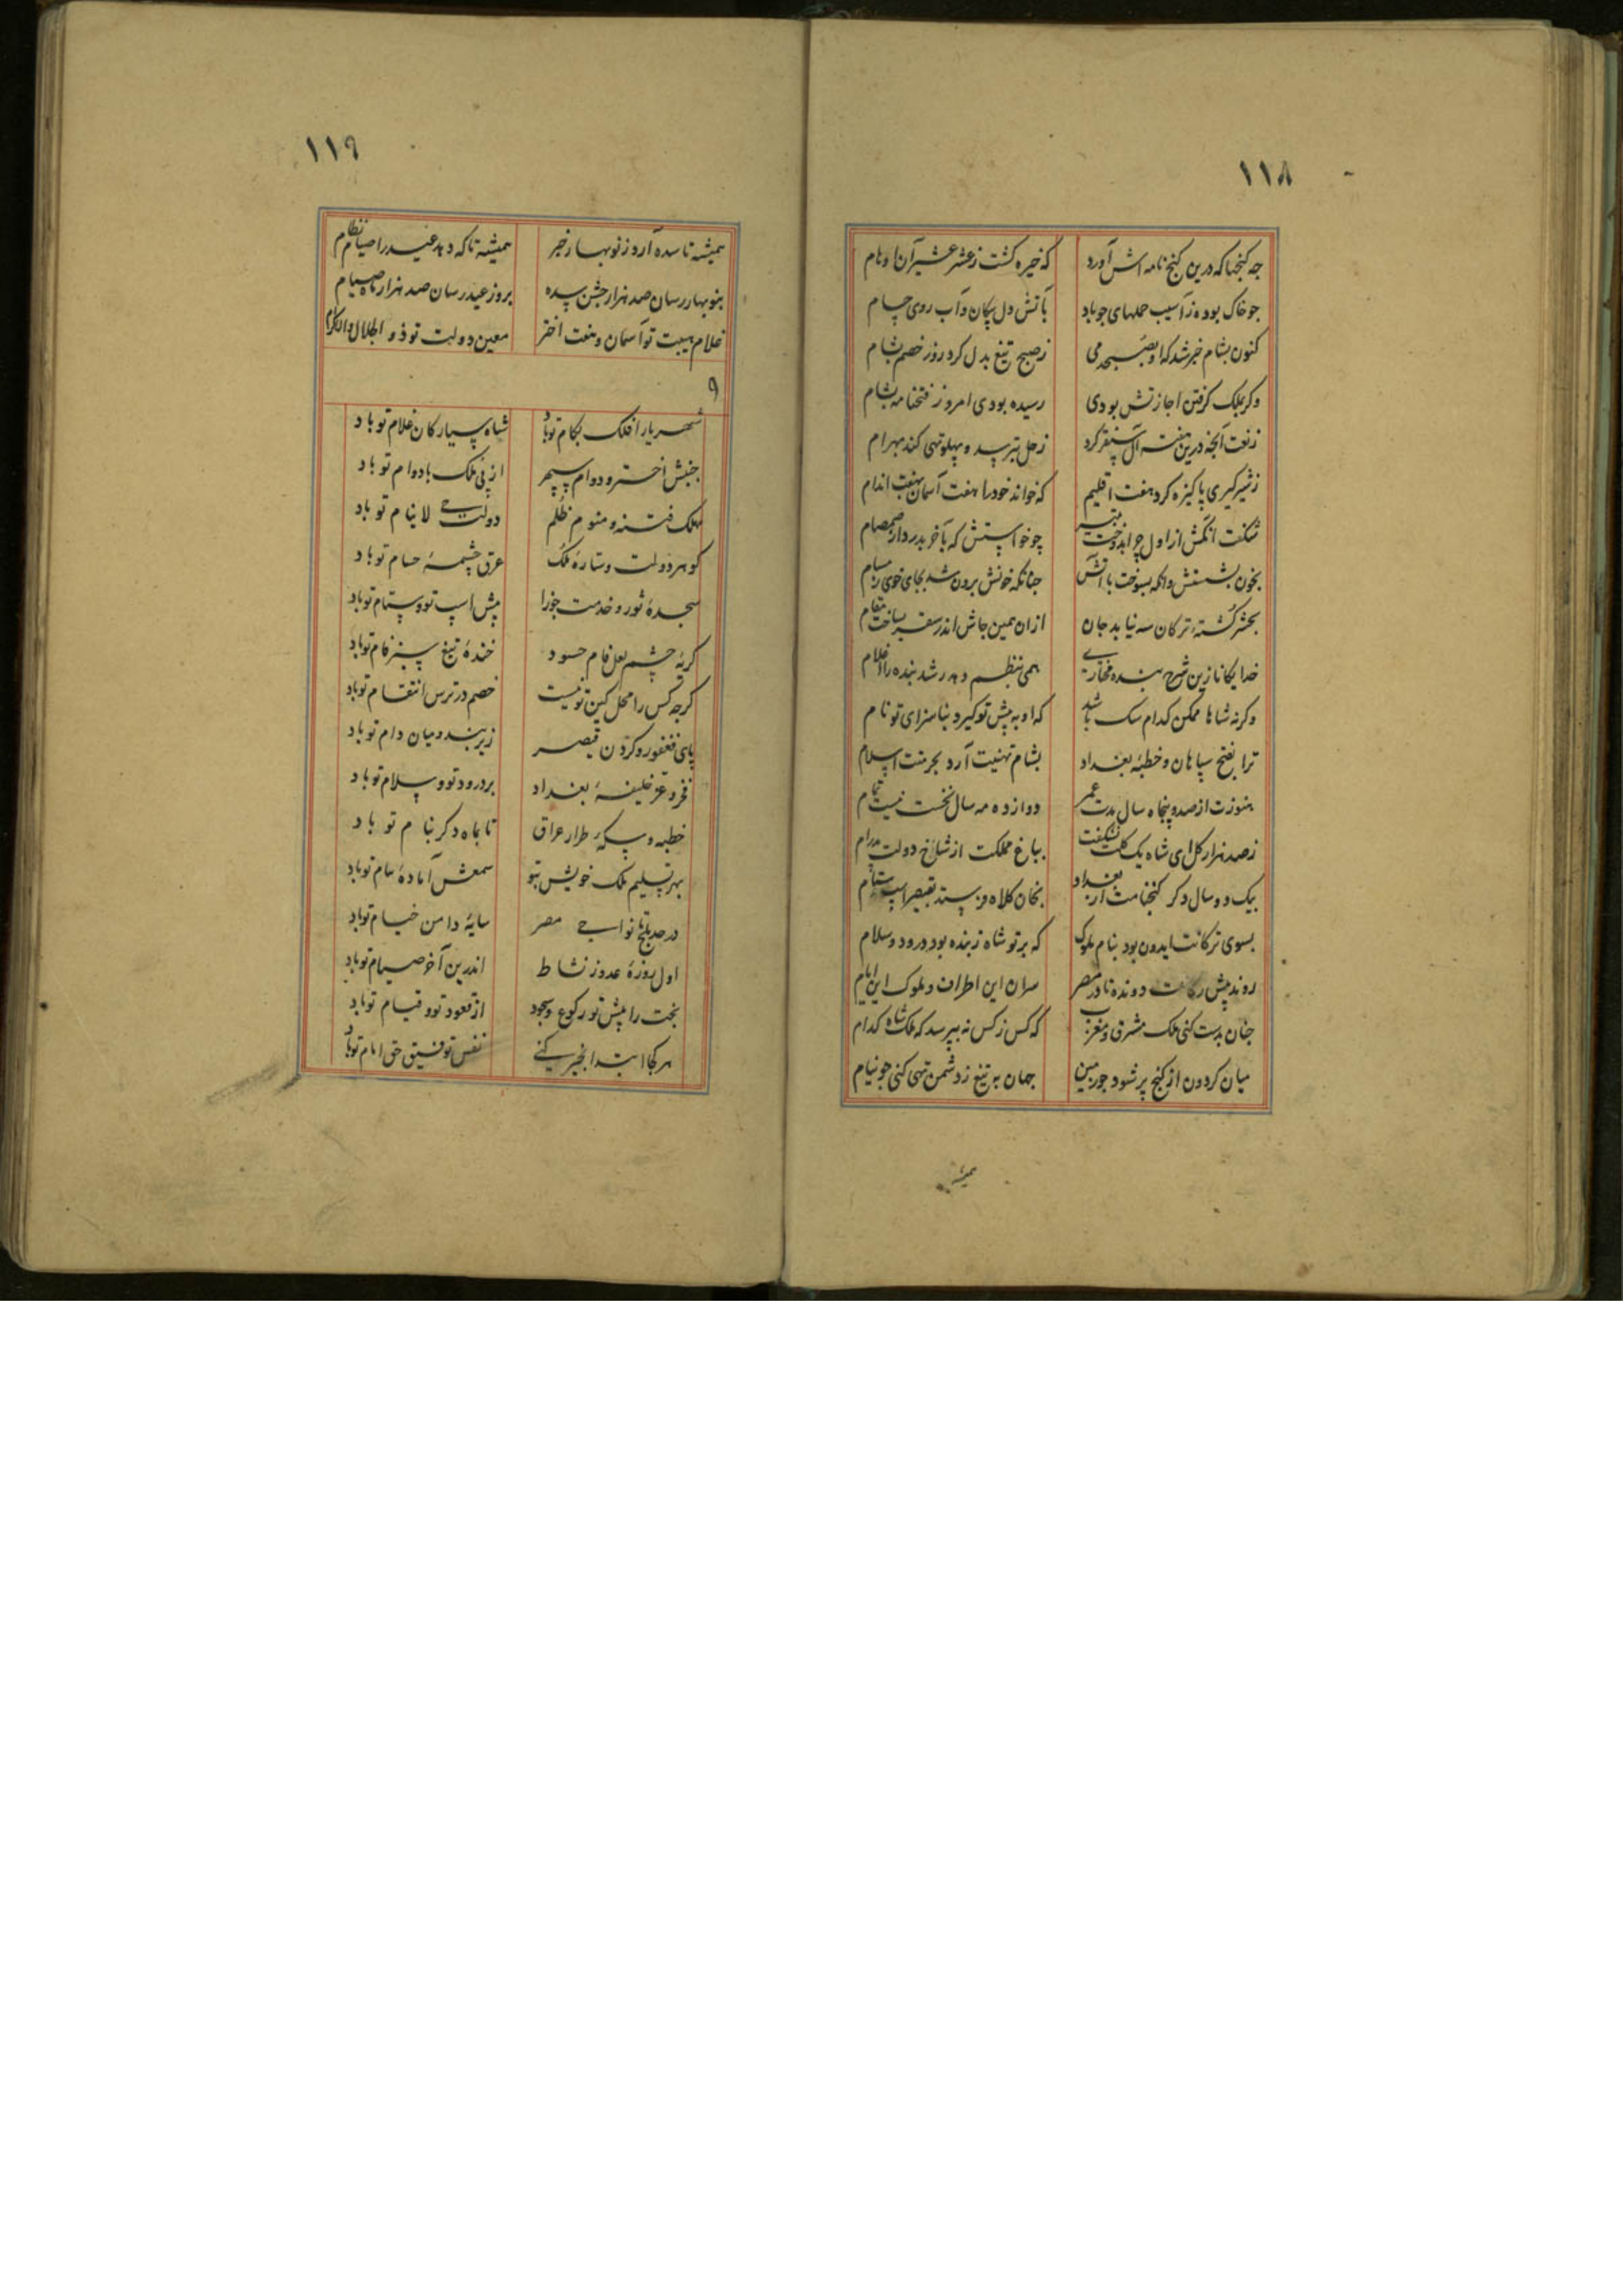 ١١٨
چه گنجها که درین گنج نامه اش آورد که خیره گشت ز عشر عشیر آن اوهام
جو خاک بوده ز آسیب حملهای جو باد بآتش دل پیکان و آب روی حسام
کنون بشام خبر شد که او بصبحدمی ز صبح تیغ بدل کرد روز خصم بشام
وگر بملک گرفتن اجازتش بودی رسیده بودی امروز فتحنامه بشام
ز نعت آنچه درین هفته آق سنقر کرد زحل بترسد و پهلو تهی کند بهرام
ز شیرگیری پاکیزه کرد هفت اقلیم که خواند خود را هفت آسمان بهفت اندام
شگفت از اول چرا چو خواستش که بآخر بدرد از صمصام
بخون بشستش وانگه بسوخت با آتش چنانکه خونش برون شد بجای خوی ز مسام
بحشر کشته ترکان سه نیابد جان ازان همین جاش اندر سقر بساخت مقام
خدایگانا زین شرح بنده مختاری همی بنظم دهد رشد بنده را اعلام
وگرنه شاها ممکن کدام سگ باشد که او به پیش تو گیرد بناسزای تو نام
ترا بفتح سپاهان و خطبه بغداد بشام تهنیت آرد بحرمت اسلام
هنوزت از صد و پنجاه سال مدت عمر دوازده مه سال نخست نیست تمام
ز صد هزار گل ای شاه یک گلت نشکفت بباغ مملکت از شاخ دولت پدرام
بیک دو سال دگر گنجنامت از بغداد بخان کلاه فرستد بقیصر اسب ستام
بسوی ترکانت ایدون بود بنام ملوک که بر تو شاه زبنده بود درود و سلام
روند پیش رکابت دونده تا در مصر سران این اطراف و ملوک این ایام
چنان بدست کنی ملک مشرق و مغرب که کس ز کس نه بپرسد که ملک شاه کدام
میان گردون از گنج پر شود چو زمین جهان به تیغ ز دشمن تهی کنی چو نیام
همیشه
١١٩
همیشه تا سده آرد ز نوبهار خبر همیشه تا که دهد عید را صیام نظام
بنوبهار رسان صد هزار جشن سده بروز عید رسان صد هزار ماه صیام
غلام هیبت تو آسمان و هفت اختر معین دولت تو ذو الجلال والاکرام
٩
شهریارا فلک بکام تو باد شاه سیارگان غلام تو باد
جنبش اختر و دوام سپهر از پی ملک با دوام تو باد
مهلک فتنه و منوم ظلم دولت لاینام تو باد
گوهر دولت و ستاره ملک عرق چشمهٔ حسام تو باد
سجدهٔ ثور و خدمت جوزا پیش اسپ تو و ستام تو باد
گریه چشم لعل فام حسود خندهٔ تیغ سبز فام تو باد
گرچه کس را محل کین تو نیست خصم در ترس انتقام تو باد
پای فغفور و گردن قیصر زیر بند و میان دام تو باد
فخر و عز خلیفهٔ بغداد بر درود تو و سلام تو باد
خطبه و سکهٔ طراز عراق تا بماه دگر بنام تو باد
بهر تسلیم ملک خویش بتو سمعش آمادهٔ سام تو باد
در حد بلخ تا نواحی مصر سایهٔ دامن خیام تو باد
اول روزهٔ عدو ز نشاط اندرین آخر صیام تو باد
بخت را پیش تو رکوع و سجود از قعود تو و قیام تو باد
هر کجا ابتدا بخیر کنی نفس توفیق حق امام تو باد